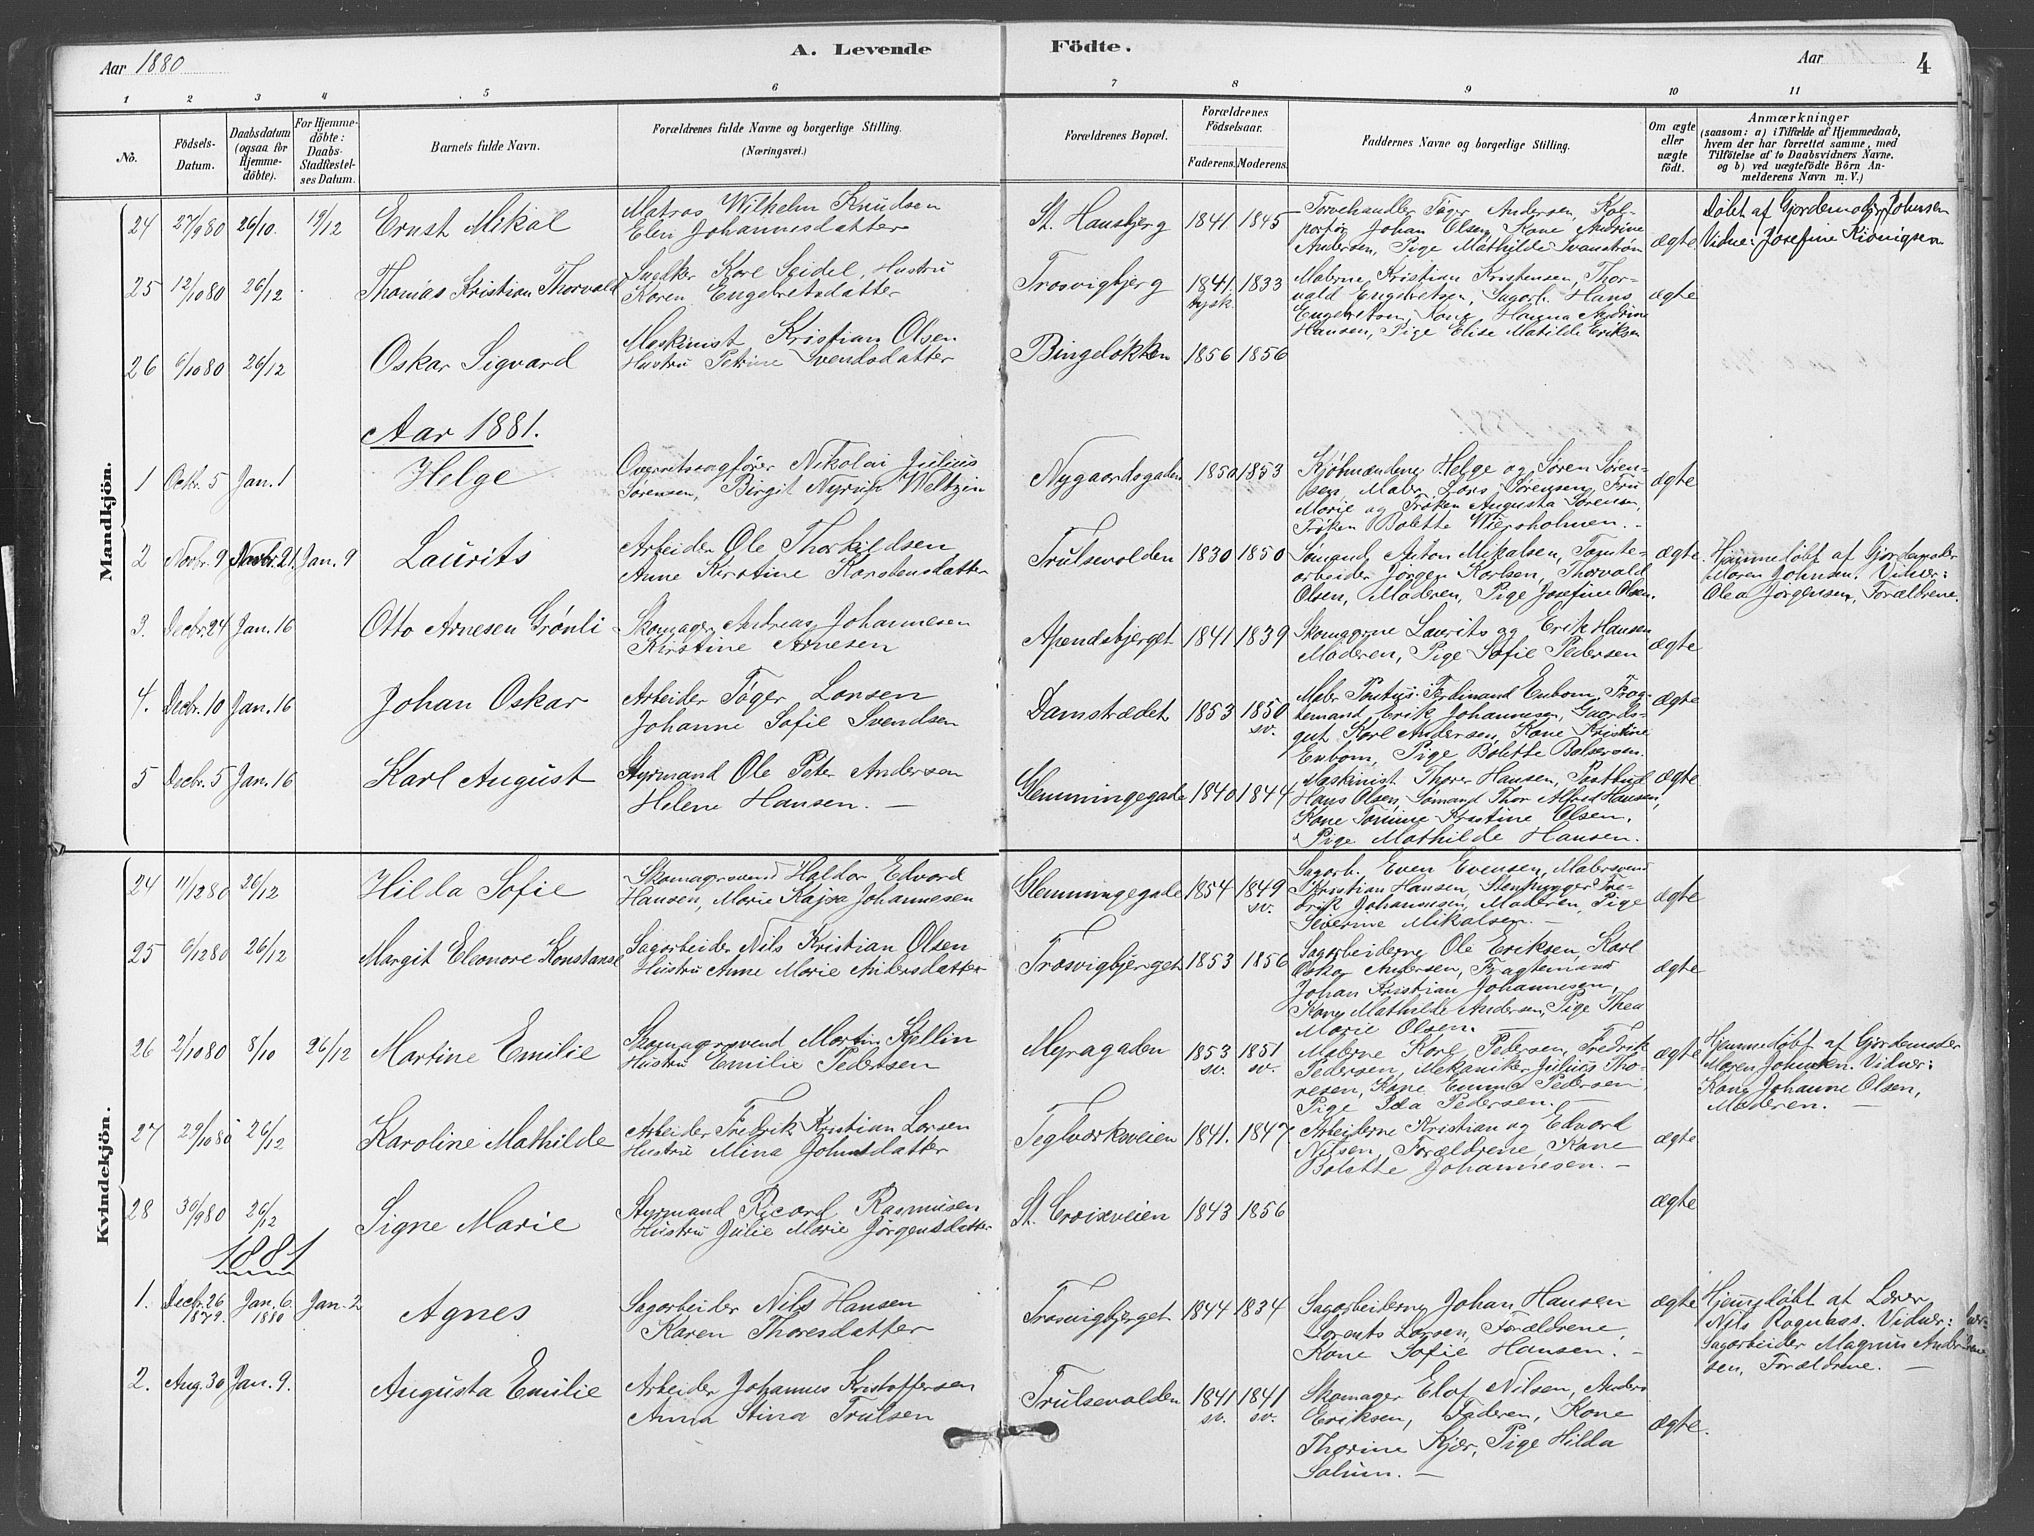 Aar 1880
A. Levende Födte.
Aar
4
1 2 3 4 5 6 7 8 9 10 11
No.
Födsels-Datum.
Daabsdatum (ogsaa for Hjemme-döbte).
For Hjemme-döbte: Daabs-Stadfæstel-ses Datum.
Barnets fulde Navn.
Forældrenes fulde Navne og borgerlige Stilling.
(Næringsvei.)
Forældrenes Bopæl.
Forældrenes Födselsaar.
Faderens. Moderens.
Faddernes Navne og borgerlige Stilling.
Om ægte eller uægte födt.
Anmærkninger
(saasom: a) i Tilfælde af Hjemmedaab,
hvem der har forrettet samme, med
Tilföielse af to Daabsvidners Navne,
og b) ved uægtefödte Börn An-
melderens Navn m. V.)
Mandkjön.
24 27/9 80 26/10. 19/12 Ernst Mikal
Matros Wilhelm Knudsen
Elen Johannesdatter
St. Hansbjerg 1841 1845
Torvehandler Tøger Andersen, Kol-
portør Johan Olsen, Kone Andrine
Andersen, Pige Mathilde Svanstrøm
ægte
Døbt af Gjordemoder Johnsen
Vidne: Josefine
25 12/10 80 26/12 Thomas Kristian Thorvald
Snedker Karl Seidel, Hustru
Karen Engebretsdatter
Trosvigbjerg 1841. tysk 1833
Malerne Kristian Kristensen, Thor-
vald Engebretsen, Sagarb. Hans
Engebretsen, Kone Hanna Andrine
Hansen, Pige Elise Matilde Eriksen
ægte
26 6/10 80 26/12 Oskar Sigvard
Maskinist Kristian Olsen
Hustru Petrine Svendsdatter
Bingeløkken 1856 1856
Aar 1881.
1 Octbr. 5 Jan. 1 Helge
Overretssagfører Nikolai Julius
Sørensen, Birgit Nyrup Weltzin
Nygaardsgaden 1850 1853
Kjøbmændene Helge og Søren Søren-
sen, Maler Lars Sørensen, Fru
Marie og Frøken Augusta Sørensen,
Frøken Bolette Wiersholmen. -
ægte
2 Novbr. 9 Novbr. 21. Jan. 9 Laurits
Arbeider Ole Thorkildsen
Anne Kirstine Karstensdatter
Trulsevolden 1830 1850
Sømand Anton Mikalsen, Tomte-
arbeider Jørgen Karlsen, Thorvald
Olsen, Moderen, Pige Josefine Olsen.
ægte
Hjemmedøbt af Gjordemoder
Maren Johnsen. Vidner:
Olea Jørgensen, Forældrene.
3. Decbr. 24 Jan. 16 Otto Arnesen Grønli
Skomager Andreas Johannesen
Kirstine Arnesen
Apendsbjerget 1841 1839
Skomagerne Laurits og Erik Hansen
Moderen, Pige Sofie Pedersen
ægte
4. Decbr. 10 Jan. 16 Johan Oskar
Arbeider Tøger Larsen
Johanne Sofie Svendsen
Damstrædet 1853 1850 sv.
Maler Pontus Ferdinand Enbom, Frag-
temand Erik Johannesen, Gaards-
gut Karl Andersen, Kone Kristine
Enbom, Pige Bolette
ægte
5 Decbr. 5 Jan. 16 Karl August
Styrmand Ole Peter Andersen
Helene Hansen. -
Glemmingegade 1840 1844
Maskinist Thorer Hansen, Postbud
Hans Olsen, Sømand Thor Alfred Hansen,
Kone Tomine Kristine Olsen,
Pige Mathilde Hansen.
ægte
Kvindekjön.
24 11/12 80 26/12 Hilda Sofie
Skomagersvend Haldor Edvard
Hansen, Marie Kajsa Johannesen
Glemmingegade 1854 1849 sv.
Sagarb. Even Evensen, Malersvend
Kristian Hansen, Stenhugger Fre-
drik Johannesen, Moderen, Pige
Severine Mikalsen. -
ægte
25 6/12 80 26/12 Margit Eleonore Konstanse
Sagarbeider Nils Kristian Olsen
Hustru Anne Marie Andersdatter
Trosvigbjerget 1853 1856
Sagarbeiderne Ole Eriksen, Karl
Oskar Andersen, Fragtemand
Johan Kristian Johannesen,
Kone Mathilde Andersen, Pige Thea
Marie Olsen.
ægte
26 2/10 80 8/10 26/12 Martine Emilie
Skomagersvend Martin Kjellin
Hustru Emilie Pedersen
Myragaden 1853 sv. 1851 sv.
Malerne Karl Pedersen, Fredrik
Pedersen, Mekaniker Julius Tho-
resen, Kone Emma Pedersen
Pige Ida Pedersen. -
ægte
Hjemmedøbt af Gjordemoder
Maren Johnsen. Vidner:
Kone Johanne Olsen,
Moderen. -
27 29/10 80 26/12 Karoline Mathilde
Arbeider Fredrik Kristian Larsen
Hustru Mina Johnsdatter
Teglværksveien 1841. 1847
Arbeiderne Kristian og Edvard
Nilsen, Forældrene, Kone
Bolette Johannesen. -
ægte
28 30/9 80 26/12 Signe Marie
Styrmand Ricard Rasmusen
Hustru Julie Marie Jørgensdatter
St. Croixveien 1843 1856
ægte
1881
1. Decbr. 26 1879. Jan. 6. 1880 Jan. 2 Agnes
Sagarbeider Nils Hansen
Karen Thoresdatter
Trosvigbjerget 1844 1834
Sagarbeiderne Johan Hansen
Lorents Larsen, Forældrene,
Kone Sofie Hansen. -
ægte
Hjemmedøbt af Lærer
Nils Rognaas. Vidner:
Sagarbeider Magnus Ander-
sen, Forældrene. -
2. Aug. 30 Jan. 9. Augusta Emilie
Arbeider Johannes Kristoffersen
Anna Stina Trulsen
Trulsevolden 1841 sv. 1841 sv.
Skomager Elof Nilsen, Anders
Eriksen, Faderen, Kone
Thorine Kjær, Pige Hilda
Solum. -
ægte.